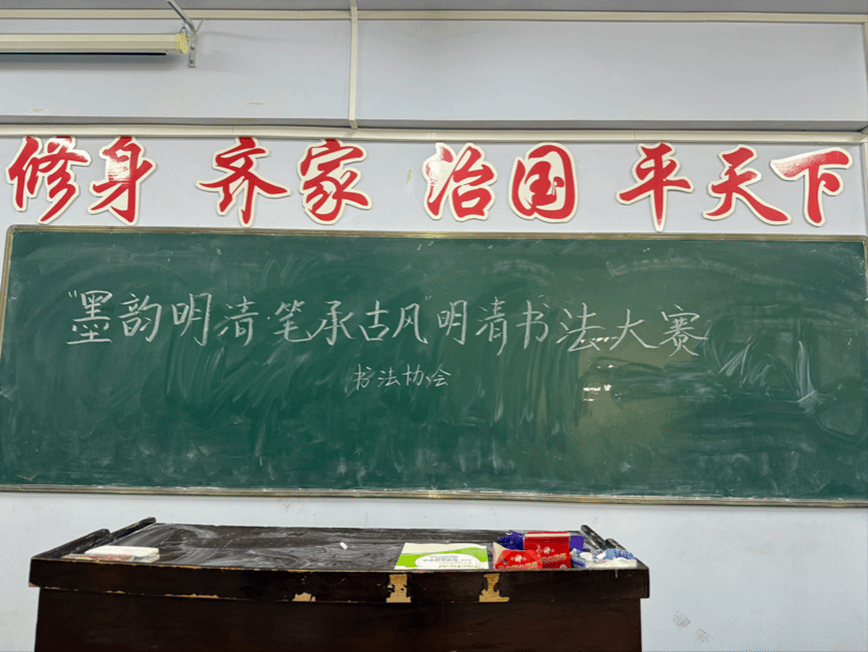 修身 齐家 治国 平天下
“墨韵明清 笔承古风”明清书法大赛
书法协会